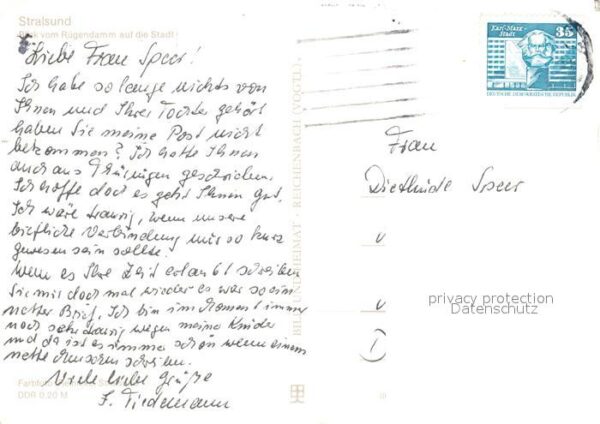 Stralsund
Blick vom Rügendamm auf die Stadt
Liebe Frau Speer!
Ich habe so lange nichts von
Ihnen und Ihrer Tochter gehört
haben Sie meine Post nicht
bekommen? Ich hatte Ihnen
auch aus Thüringen geschrieben.
Ich hoffe doch es geht Ihnen gut.
Ich wäre traurig, wenn unsere
briefliche Verbindung nur so kurz
gewesen sein sollte.
Wenn es Ihre Zeit erlaubt schreiben
Sie mir doch mal wieder es war so ein
netter Brief. Ich bin im Moment immer
noch sehr traurig wegen meine Kinder
und da ist es immer schön wenn einem
nette Menschen schreiben.
Viele liebe Grüße
F. Tiedemann
DDR 0,20 M
BILD UND HEIMAT · REICHENBACH (VOGTL.)
Karl-Marx-
Stadt
35
DEUTSCHE DEMOKRATISCHE REPUBLIK
Frau
Speer
privacy protection
Datenschutz